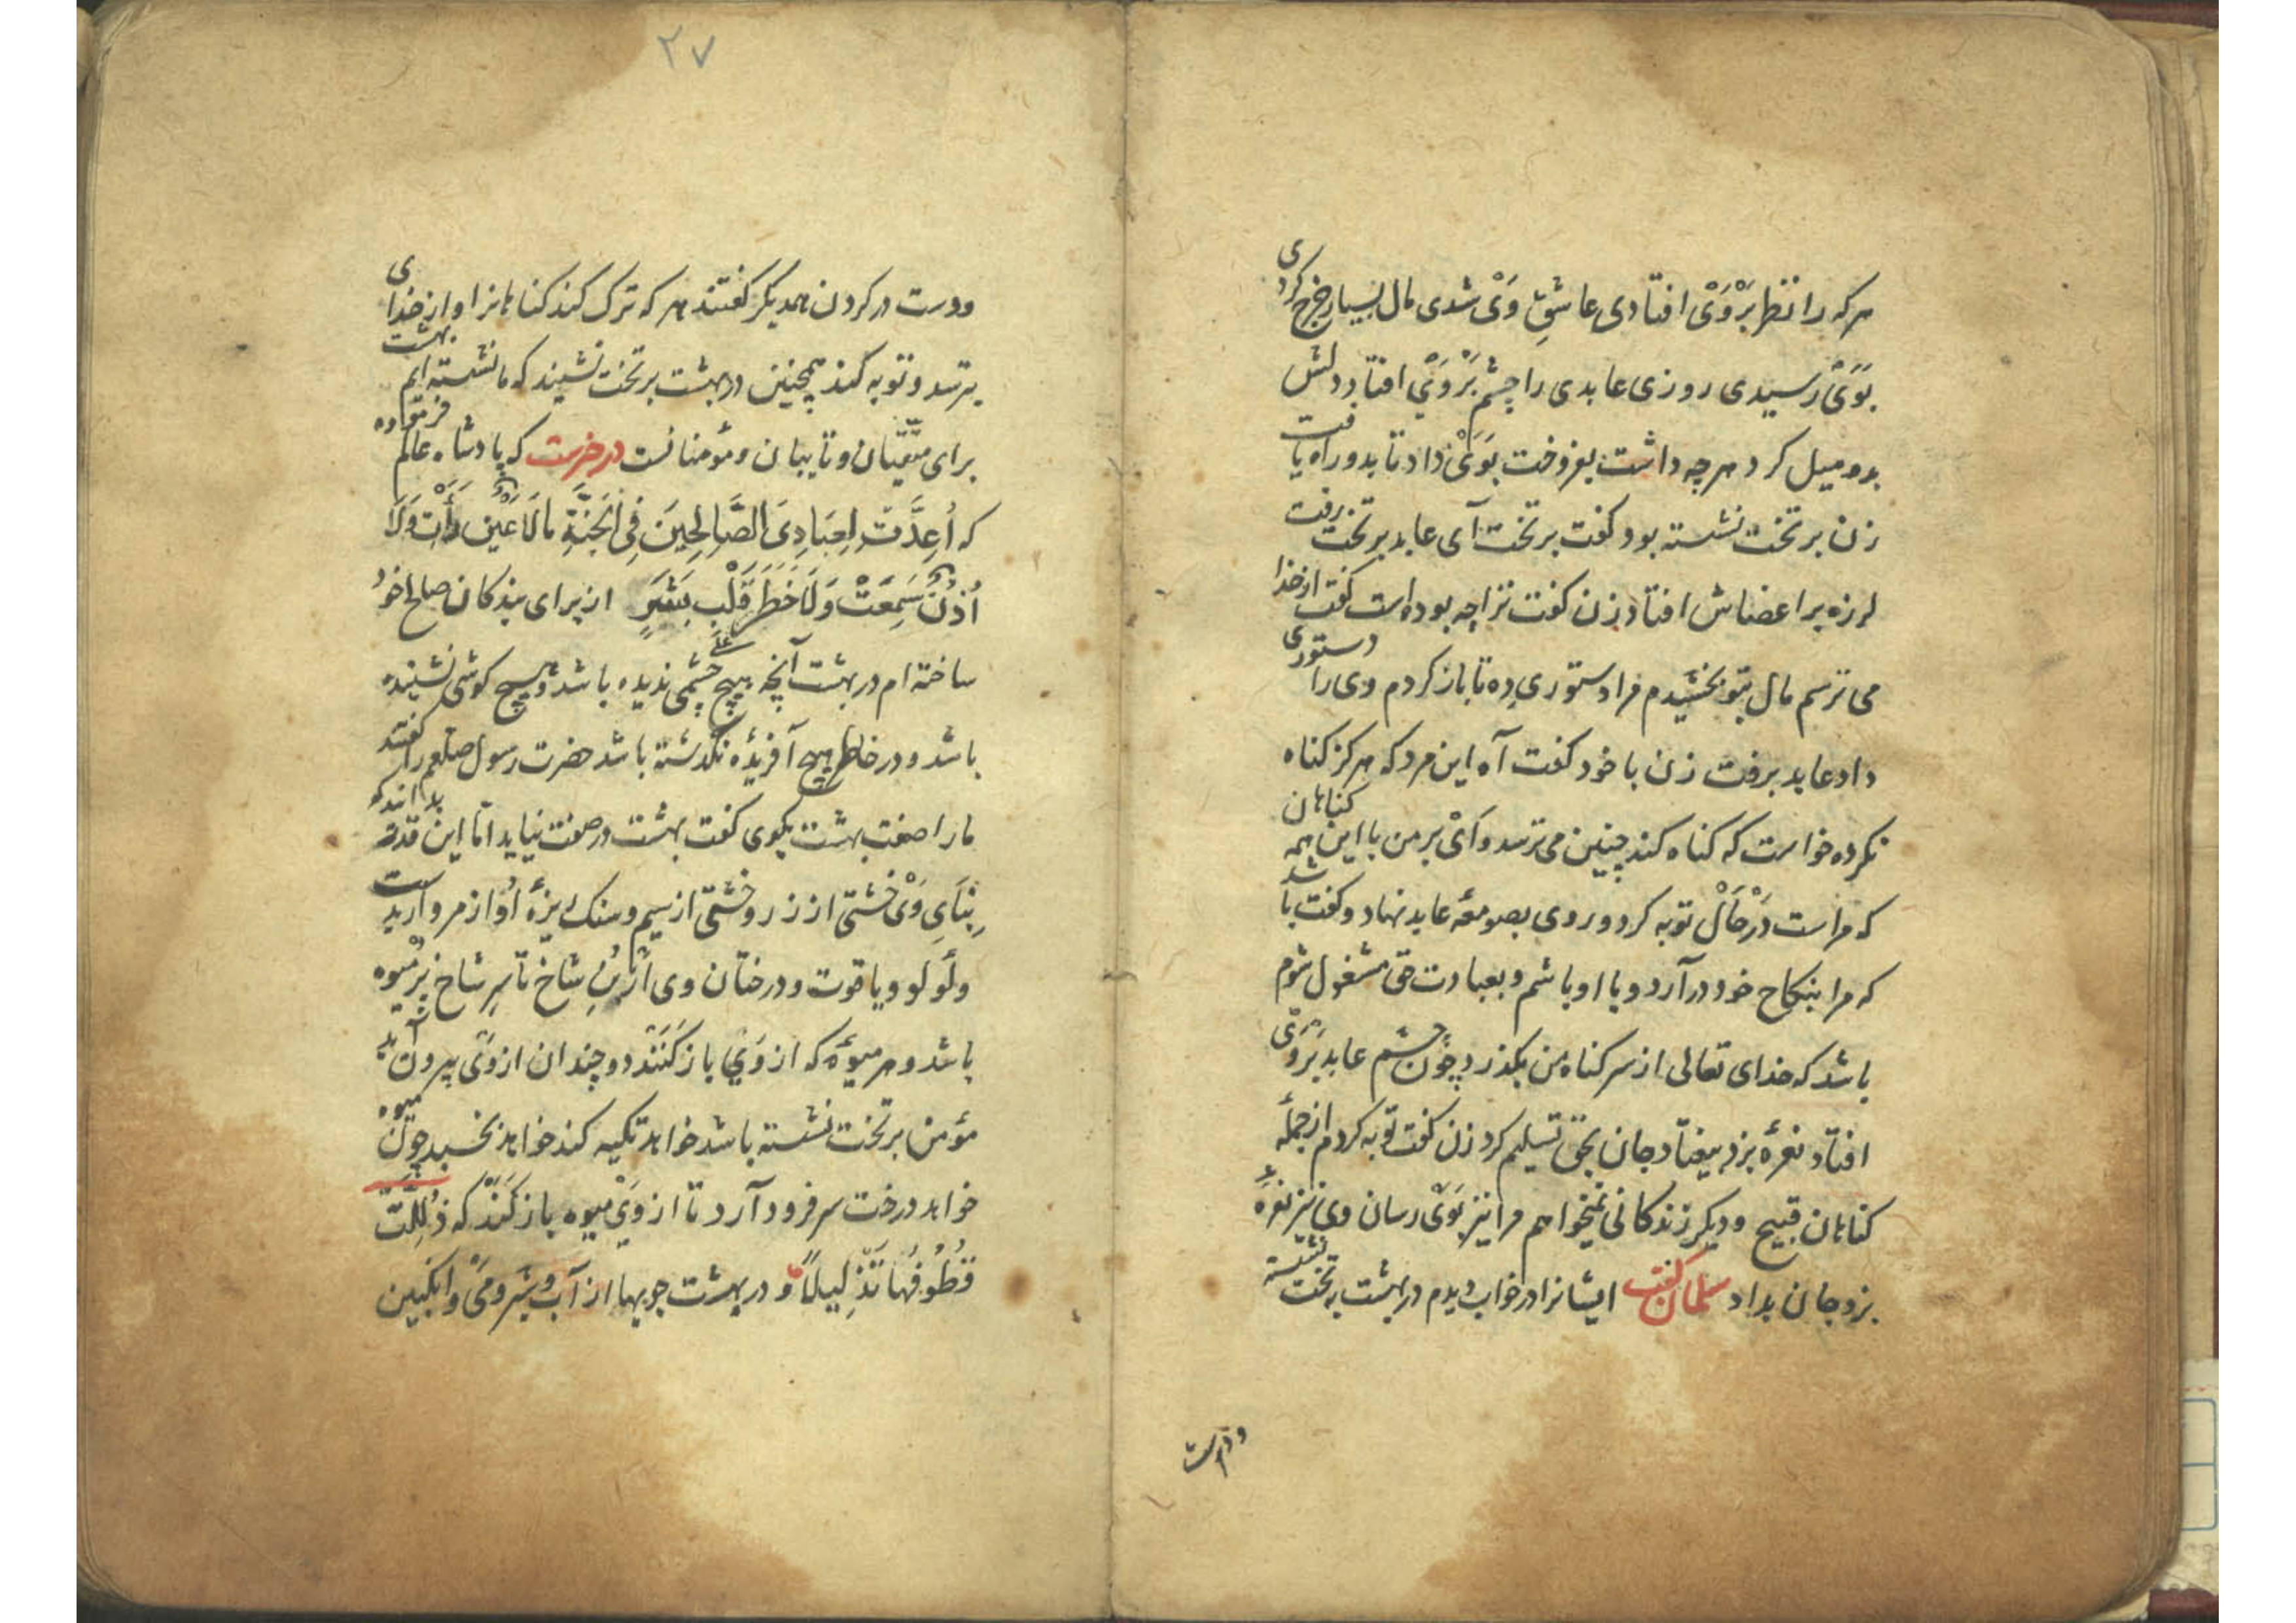 هر که را نظر بَرْوَیْ افتادی عاشقِ وَیْ شدی مال بسیار خرج کردی
بوَیْ رسیدی روزی عابدی را چشم بَرْوَیْ افتاد دلش
بدو میل کرد هرچه داشت بفروخت بوَیْ داد تا بدو راه یافت
زن بر تخت نشسته بود کفت بر تخت آی عابد بر تخت برفت
لرزه بر اعضاش افتاد زن کفت ترا چه بوده است کفت از خدا
می ترسم مال بتو بخشیدم مرا دستوری ده تا باز کردم وی را دستوری
داد عابد برفت زن با خود کفت آه این مرد که هرکز کناه
نکرده خواست که کناه کند چنین می ترسد وَایْ بر من با این همه کناهان
که مراست دَرْحَالْ توبه کرد و روی بصومعهٔ عابد نهاد و کفت باشد
که مرا بنکاح خود در آرد و با او باشم و بعبادت حق مشغول شوم
باشد که خدای تعالی از سر کناه من بکذرد چون چشم عابد بَرْوَیْ
افتاد نعرهٔ بزد بیفتاد جان بحق تسلیم کرد زن کفت توبه کردم از جملهٔ
کناهان قبیح و دیکر زندکانی نمیخواهم مرا نیز بوَیْ رسان وی نیز نعرهٔ
بزد جان بداد سلمان کفت ایشانرا در خواب دیدم در بهشت بر تخت نشسته
ودست
۲۷
ودست در کردن همدیکر کفتند هر که ترک کند کناهانرا و از خدای
بترسد و توبه کند همچنین در بهشت بر تخت نشیند که ما نشسته ایم بهشت
برای متّقیان و تایبان و مؤمنانست در خبرست که پادشاه عالم فرموده
که اُعِدَّتْ لِعِبَادِیَ الصَّالِحِینَ فِی الجَنَّةِ مَالَا عَیْنٌ رَأَتْ وَلَا
اُذُنٌ سَمِعَتْ وَلَا خَطَرَ عَلَی قَلْبِ بَشَرٍ از برای بندکان صالح خود
ساخته ام در بهشت آنچه هیچ چشمی ندیده باشد و هیچ کوشی نشنیده
باشد و در خاطر هیچ آفریدهٔ نکذشته باشد حضرت رسول صلعم را کفتند
مارا صفت بهشت بکوی کفت بهشت در صفت نیاید امّا این قدر بدانند که
بِنَایِ وَیْ خشتی از زر و خشتی از سیم و سنک ریزهٔ او از مرواریدست
و لُولُو و یاقوت و درختان وی از بُنِ شاخ تا سرِ شاخ پُر میوه
باشد و هر میوهٔ که از وَیْ باز کَنَنْد دو چندان از وَیْ بیرون آید
مؤمن بر تخت نشسته باشد خواهد تکیه کند خواهد بخسبد چون میوه
خواهد درخت سر فرود آرد تا از وَیْ میوه باز کَنَنْد که ذُلِّلَتْ
قُطُوفُهَا تَذْلِیلًا و در بهشت جویها از آب و شیر و مَیْ و انکبین